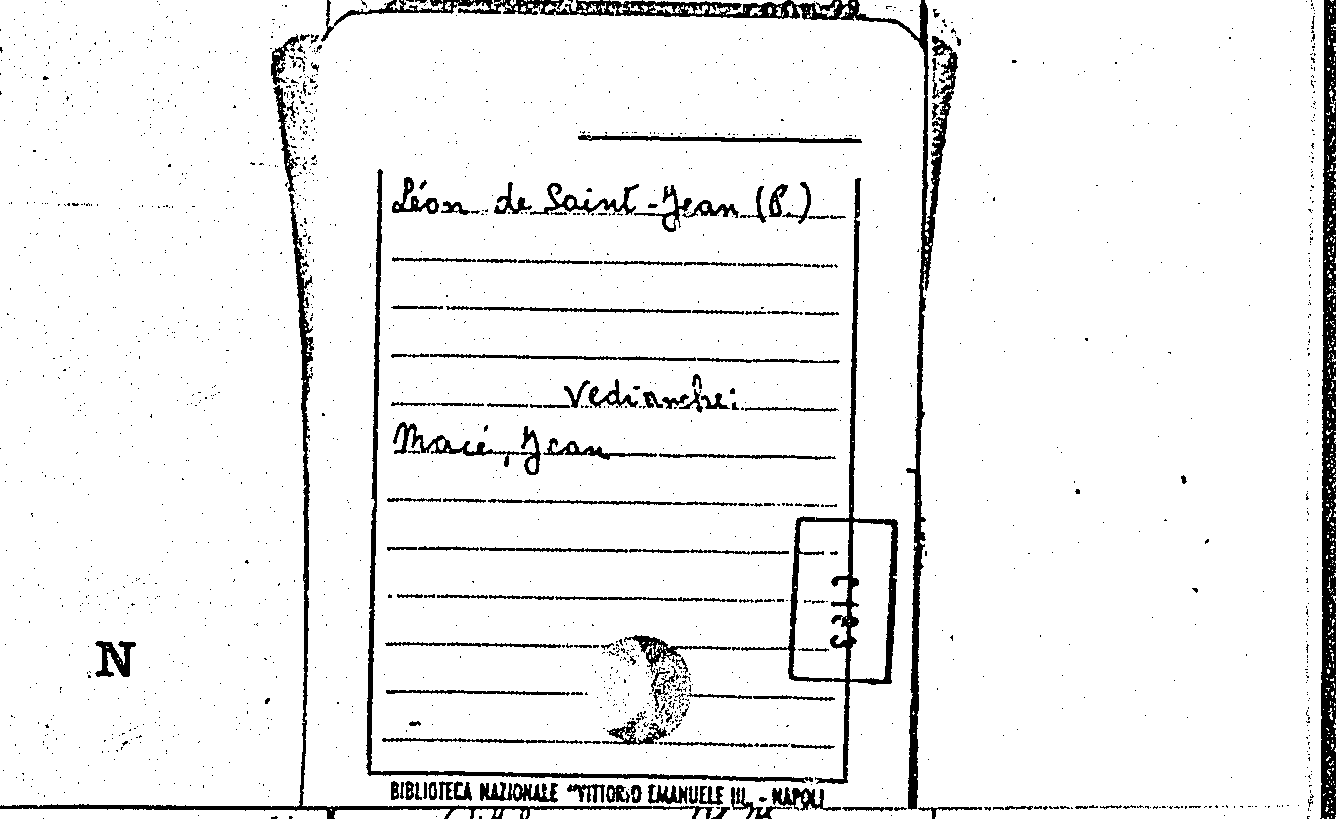 Léon de Saint-Jean (P.)
Vedi anche:
Macé, Jean
N
BIBLIOTECA NAZIONALE "VITTORIO EMANUELE III„ - NAPOLI